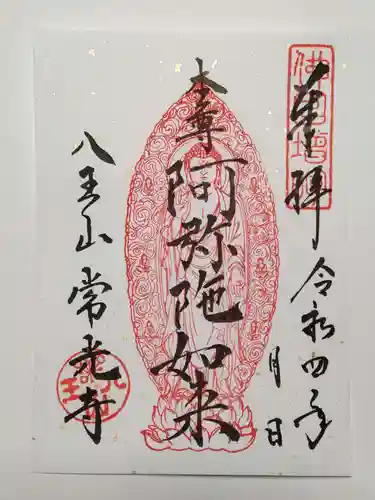 奉拝
令和四年 月 日
本尊
阿弥陀如来
八王山 常光寺